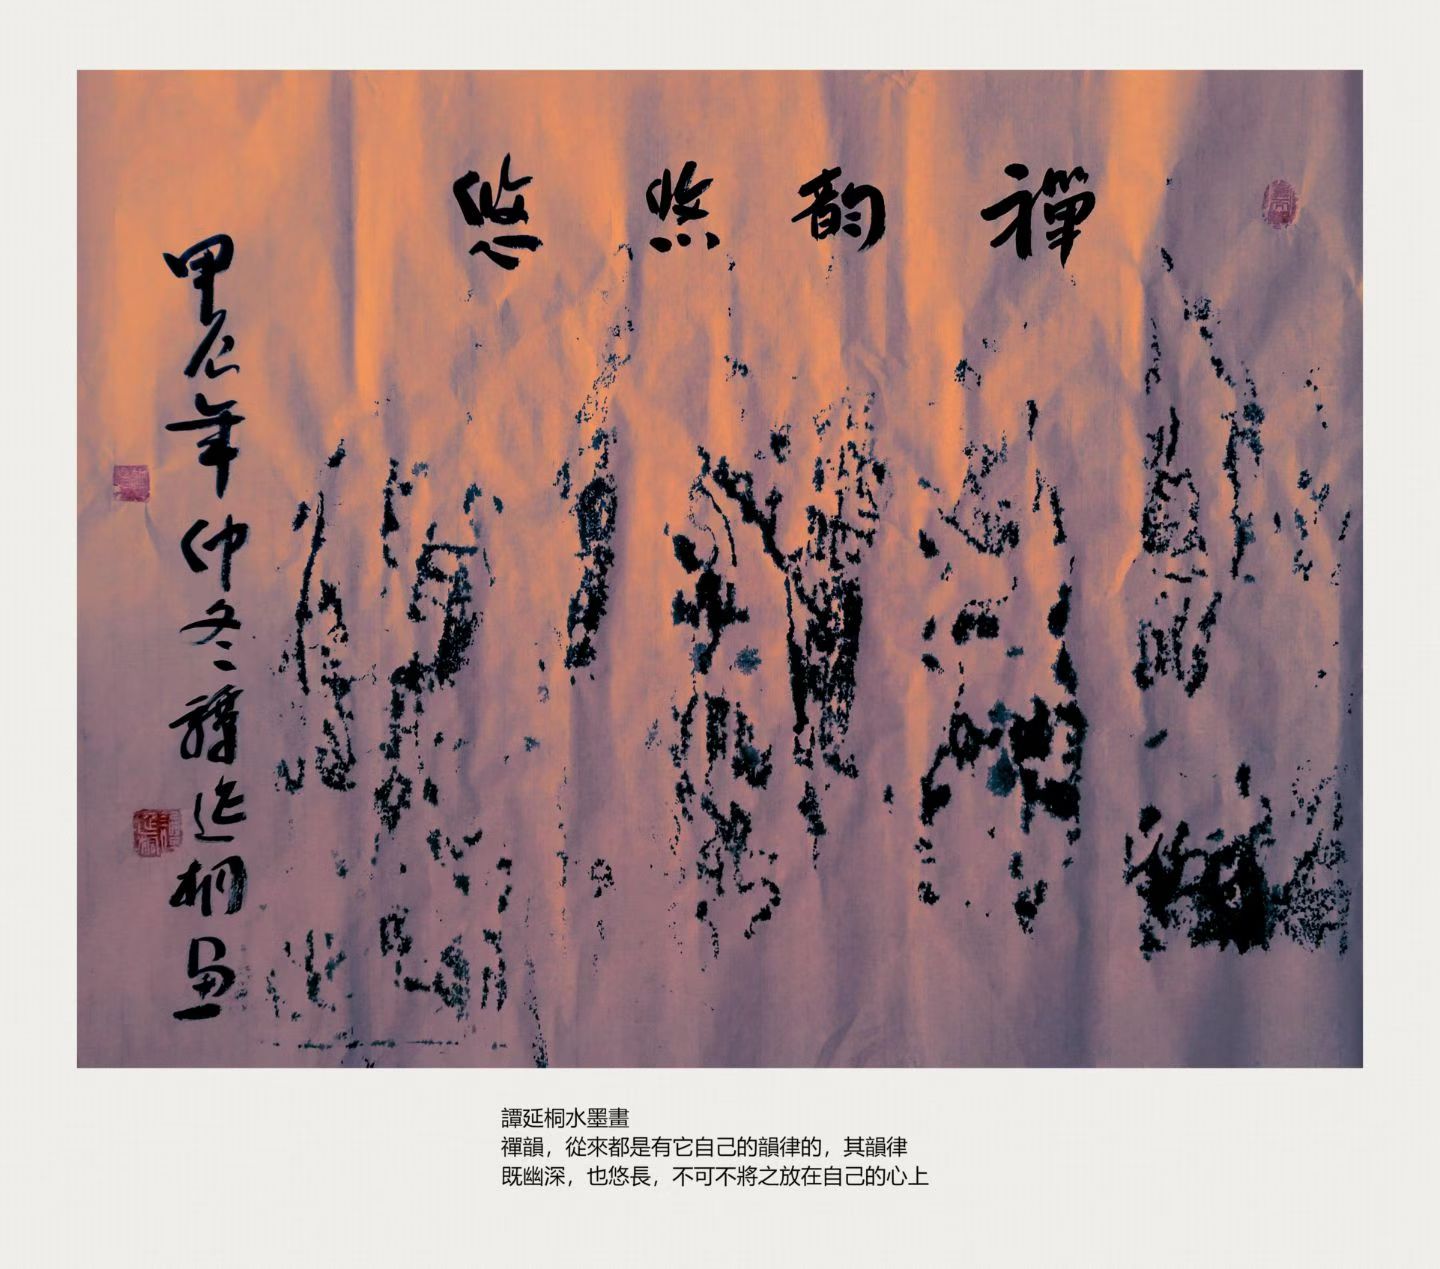 禪韵悠悠
甲辰年仲冬譚延桐畫
譚延桐水墨畫
禪韻，從來都是有它自己的韻律的，其韻律
既幽深，也悠長，不可不將之放在自己的心上